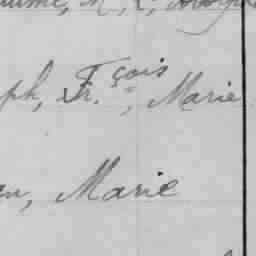 ph, Fr.çois, Marie
n, Marie